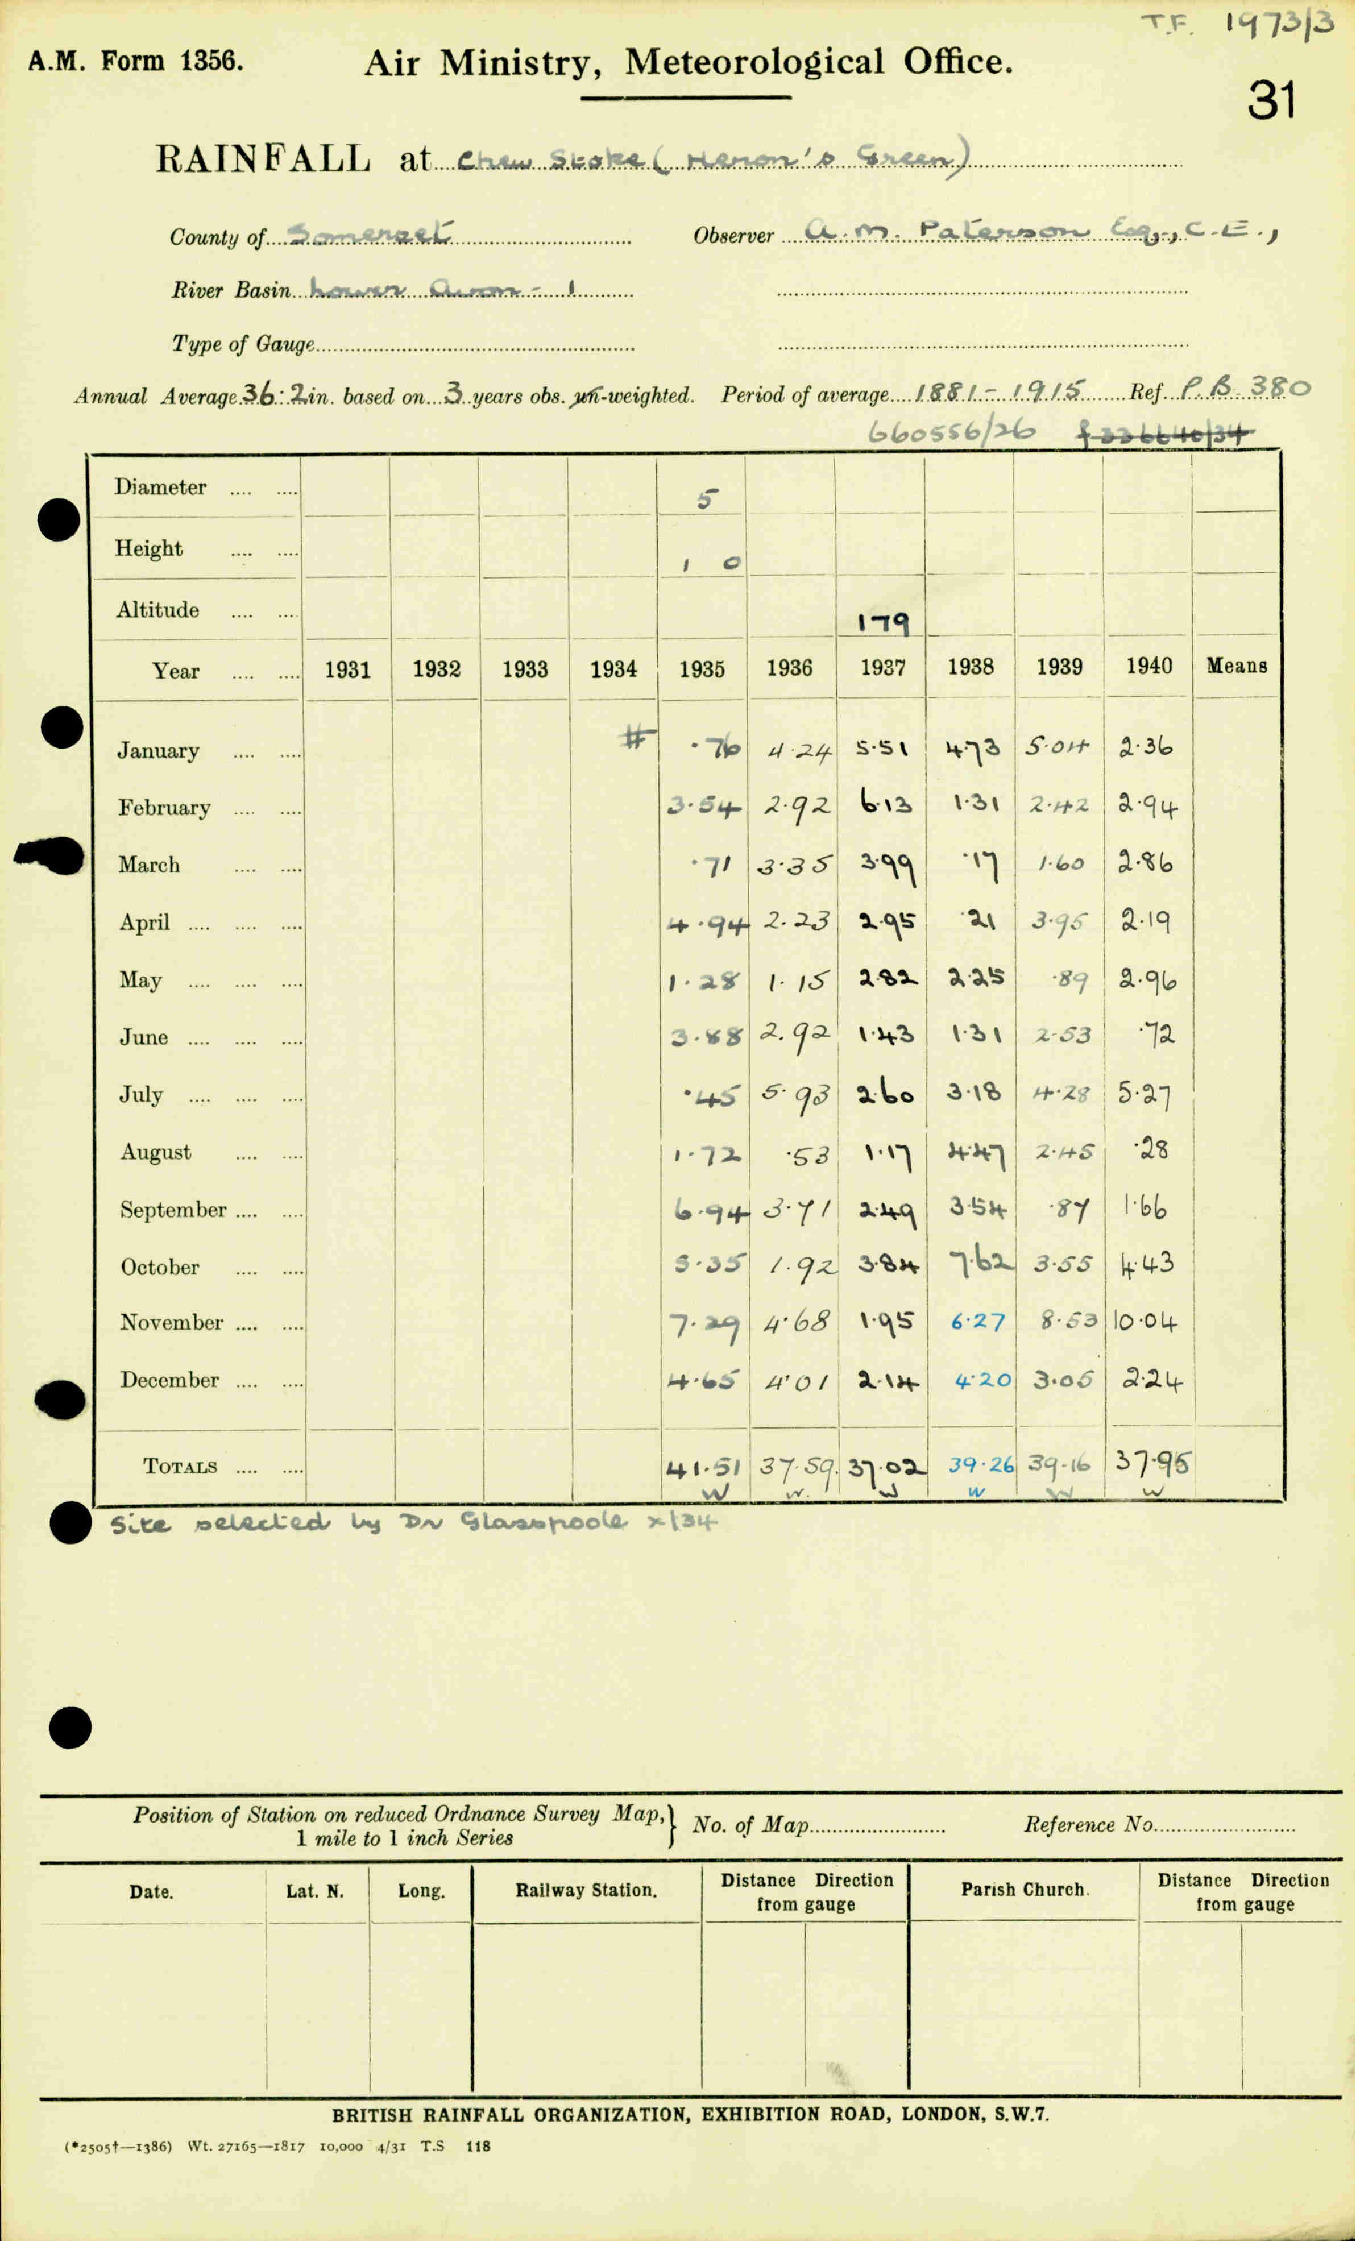 T.F. 1973/3
A.M. Form 1356. Air Ministry, Meteorological Office.
31
RAINFALL at Chew Stoke (Heron's Green)
County of Somerset Observer A.M. Paterson Esq., C.E.,
River Basin Lower Avon - 1
Type of Gauge
Annual Average 36.2 in. based on 3 years obs. un-weighted. Period of average 1881-1915 Ref. P.B. 380
660556/26 f 336640/34
Diameter 5
Height 1 0
Altitude 179
Year 1931 1932 1933 1934 1935 1936 1937 1938 1939 1940 Means
January # ·76 4·24 5·51 4·73 5·04 2·36
February 3·54 2·92 6·13 1·31 2·42 2·94
March ·71 3·35 3·99 ·17 1·60 2·86
April 4·94 2·23 2·95 ·21 3·95 2·19
May 1·28 1·15 2·82 2·25 ·89 2·96
June 3·88 2·92 1·43 1·31 2·53 ·72
July ·45 5·93 2·60 3·18 4·28 5·27
August 1·72 ·53 1·17 4·47 2·45 ·28
September 6·94 3·71 2·49 3·54 ·87 1·66
October 5·35 1·92 3·84 7·62 3·55 4·43
November 7·29 4·68 1·95 6·27 8·53 10·04
December 4·65 4·01 2·14 4·20 3·05 2·24
TOTALS 41·51 37·59 37·02 39·26 39·16 37·95
W W. W W W W
Site selected by Dr Glasspoole x/34
Position of Station on reduced Ordnance Survey Map,} No. of Map Reference No.
1 mile to 1 inch Series
Date. Lat. N. Long. Railway Station. Distance Direction Parish Church. Distance Direction
from gauge from gauge
BRITISH RAINFALL ORGANIZATION, EXHIBITION ROAD, LONDON, S.W.7.
(*2505†—1386) Wt. 27165—1817 10,000 4/31 T.S 118